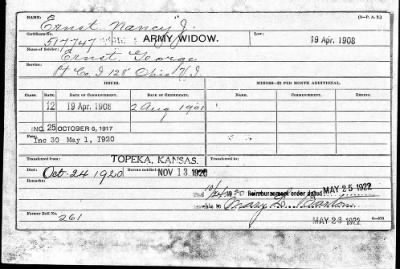 NAME: Ernst Nancy J.
(3—P. A. 2.)
Certificate No. 517747 ARMY WIDOW. Law: 19 Apr. 1908
Name of Soldier: Ernst, George
Service: Pt Co. I 128 Ohio V. I.
ISSUE. MINORS—$2 PER MONTH ADDITIONAL.
CLASS. RATE. DATE OF COMMENCEMENT. DATE OF COMMENCEMENT.
12 19 Apr. 1908 2 Aug 1901
INC. 25 OCTOBER 6, 1917
Inc 30 May 1, 1920
Transferred from TOPEKA, KANSAS.
Died: Oct 24 1920 Bureau notified NOV 13 1920
Remarks: Reimbursement order MAY 25 1922
payable to Mary
Former Roll No. 261 MAY 23 1922